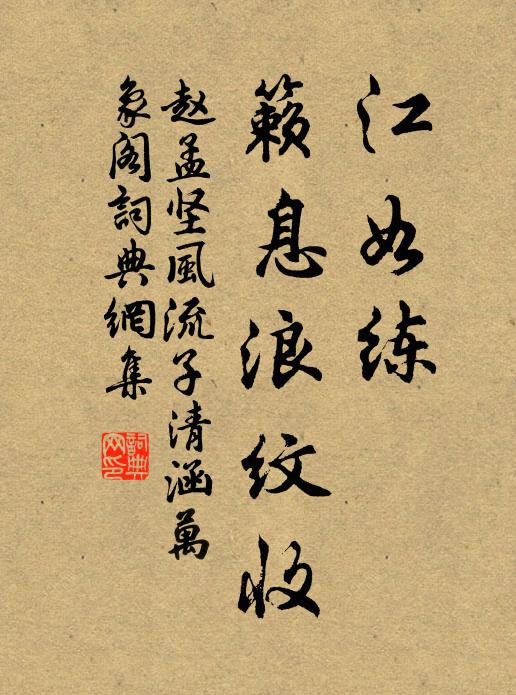 江如练
籁息浪纹收
赵孟坚風流子清涵萬
象阁詞典網集
詞典网印